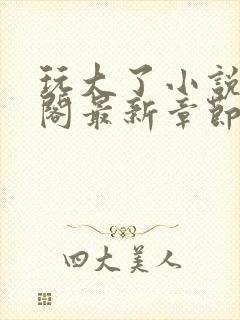 玩大了小説
閣最新章節
四大美人